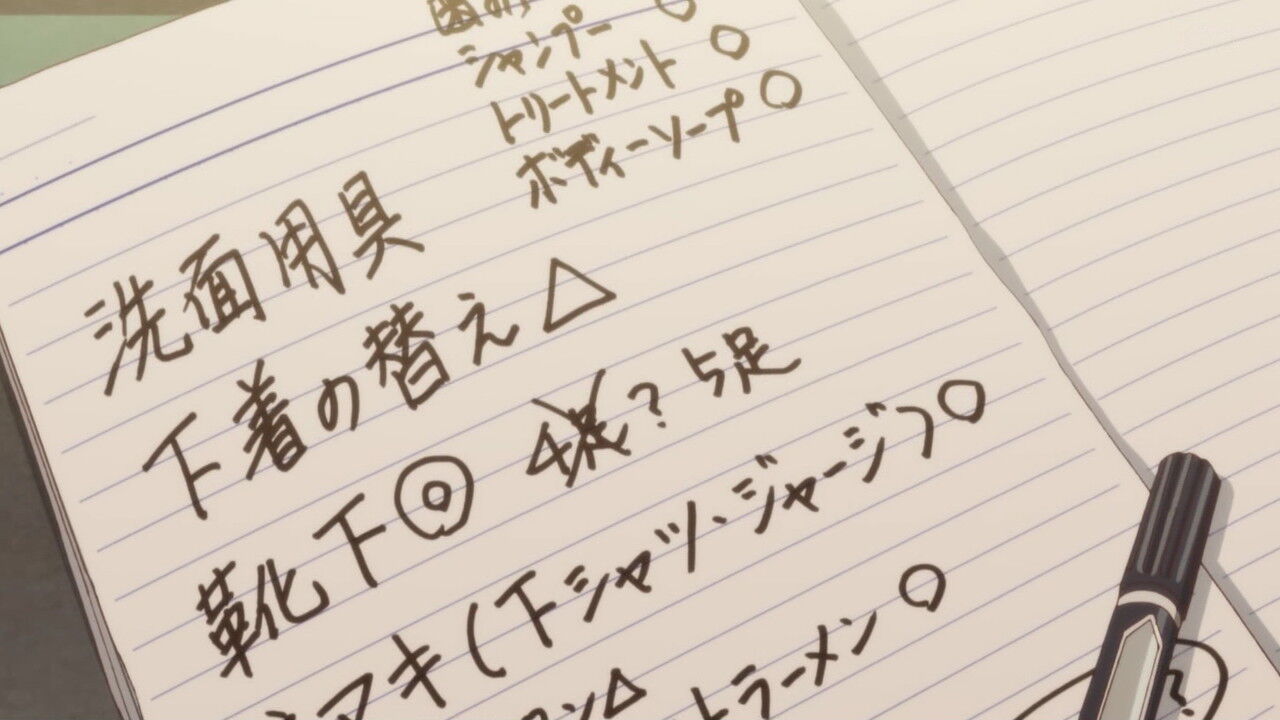 シャンプー ○
トリートメント ○
ボディーソープ ○
洗面用具
下着の替え △
靴下 ◎ 4足? 5足
マキ(下シャツ、ジャージ) ○
ン△ トラーメン ○
?